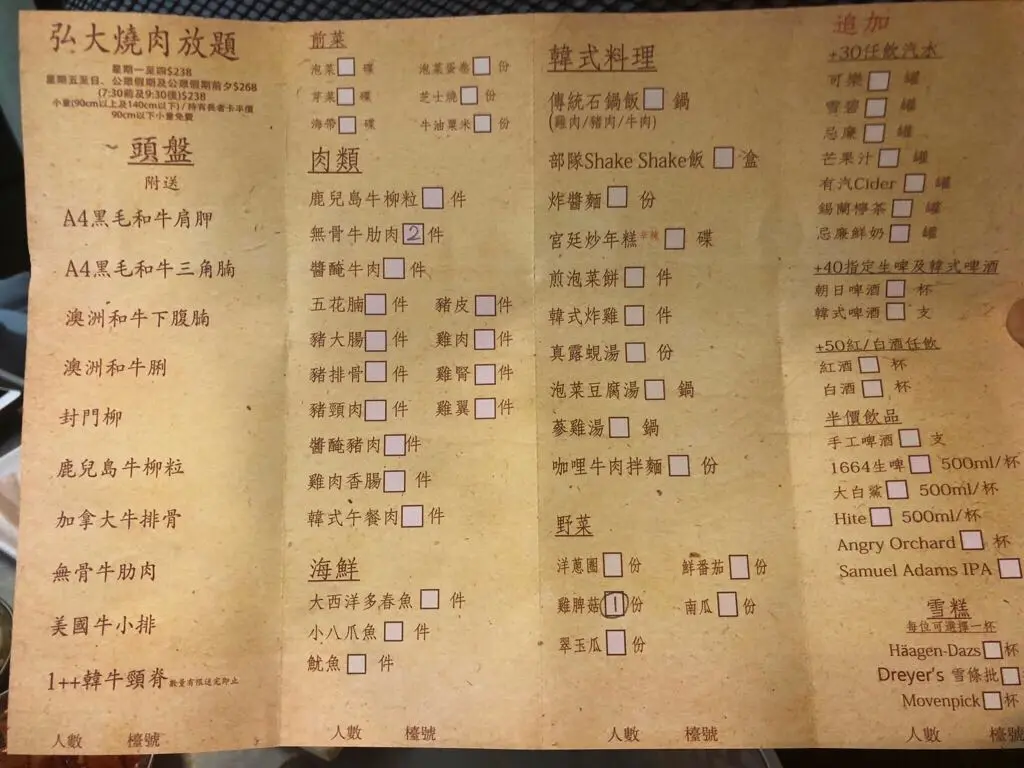 弘大燒肉放題
星期一至四$238
星期五至日、公眾假期及公眾假期前夕$268
(7:30前及9:30後)$238
小童(90cm以上及140cm以下)/持有長者卡半價
90cm以下小童免費
頭盤
附送
A4黑毛和牛肩胛
A4黑毛和牛三角腩
澳洲和牛下腹腩
澳洲和牛脷
封門柳
鹿兒島牛柳粒
加拿大牛排骨
無骨牛肋肉
美國牛小排
1++韓牛頸脊數量有限送完即止
人數 檯號
前菜
泡菜 碟 泡菜蛋卷 份
芽菜 碟 芝士燒 份
海帶 碟 牛油粟米 份
肉類
鹿兒島牛柳粒 件
無骨牛肋肉 2 件
醬醃牛肉 件
五花腩 件 豬皮 件
豬大腸 件 雞肉 件
豬排骨 件 雞腎 件
豬頸肉 件 雞翼 件
醬醃豬肉 件
雞肉香腸 件
韓式午餐肉 件
海鮮
大西洋多春魚 件
小八爪魚 件
魷魚 件
人數 檯號
韓式料理
傳統石鍋飯 鍋
(雞肉/豬肉/牛肉)
部隊Shake Shake飯 盒
炸醬麵 份
宮廷炒年糕辛辣 碟
煎泡菜餅 件
韓式炸雞 件
真露蜆湯 份
泡菜豆腐湯 鍋
蔘雞湯 鍋
咖哩牛肉拌麵 份
野菜
洋蔥圈 份 鮮番茄 份
雞脾菇 1 份 南瓜 份
翠玉瓜 份
人數 檯號
追加
+30任飲汽水
可樂 罐
雪碧 罐
忌廉 罐
芒果汁 罐
有汽Cider 罐
錫蘭檸茶 罐
忌廉鮮奶 罐
+40指定生啤及韓式啤酒
朝日啤酒 杯
韓式啤酒 支
+50紅/白酒任飲
紅酒 杯
白酒 杯
半價飲品
手工啤酒 支
1664生啤 500ml/杯
大白鯊 500ml/杯
Hite 500ml/杯
Angry Orchard 杯
Samuel Adams IPA
雪糕
每位可選擇一杯
Häagen-Dazs 杯
Dreyer's 雪條批
Movenpick 杯
人數 檯號